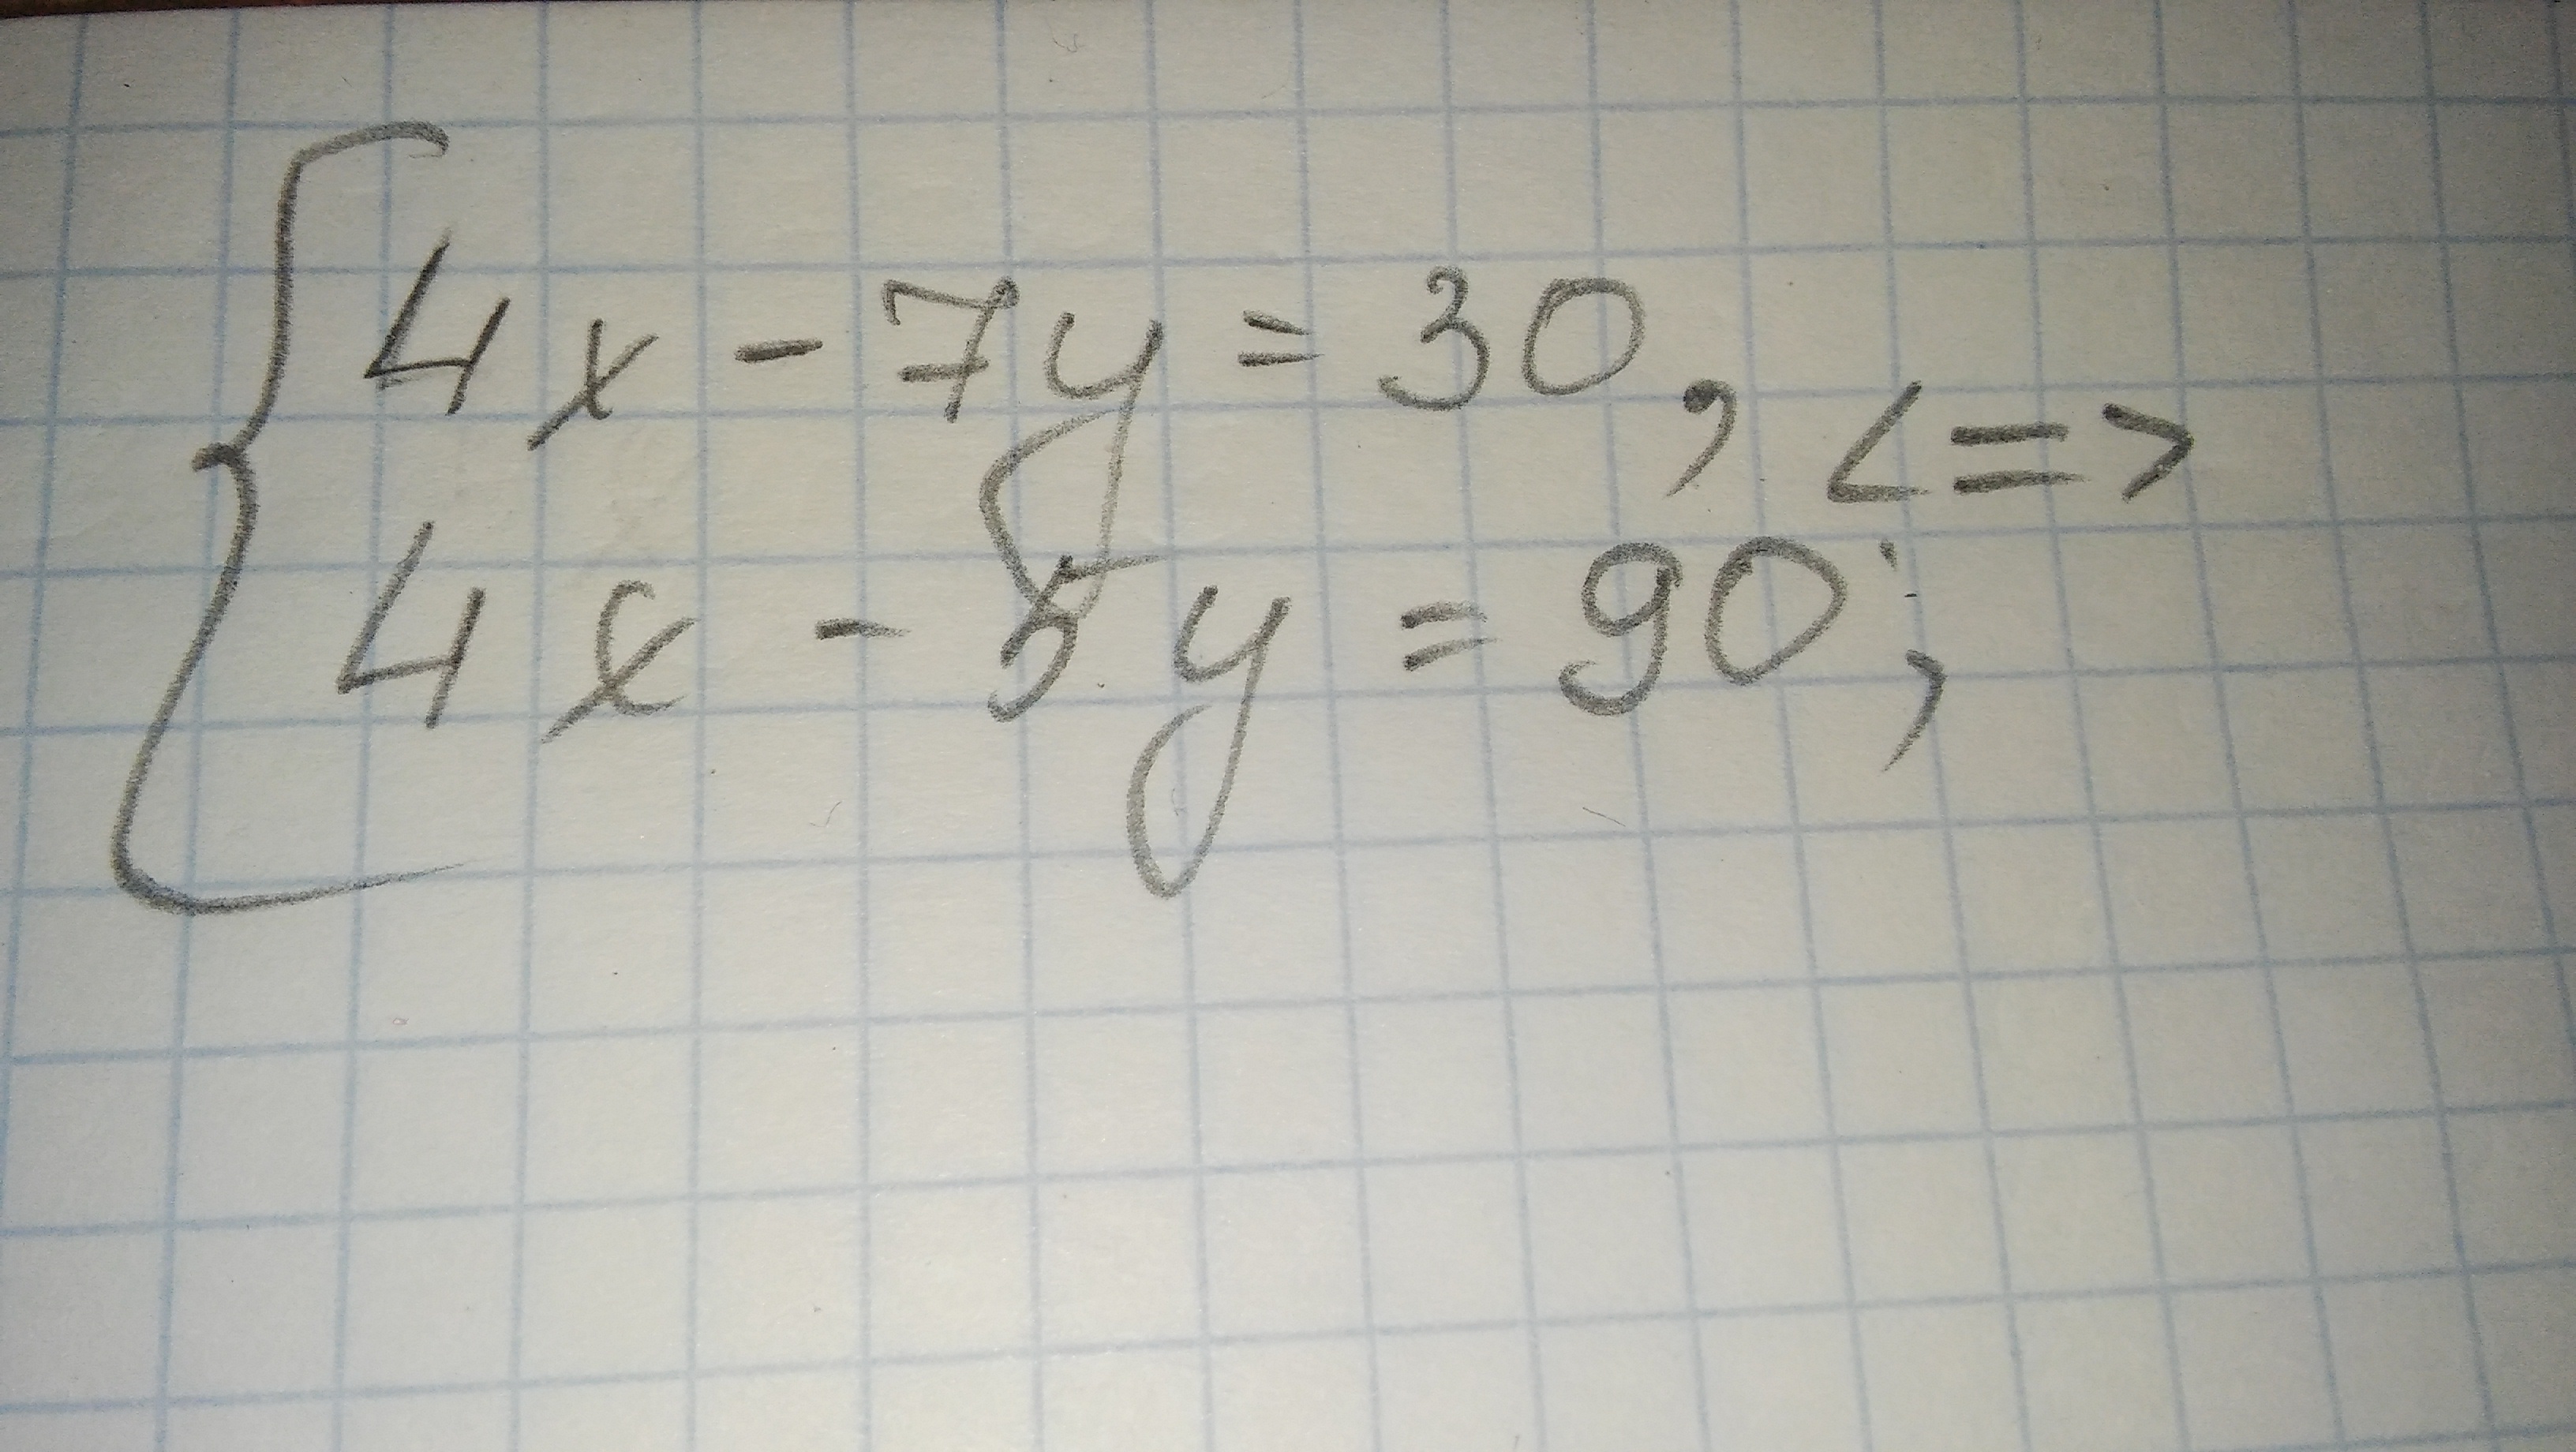 4x - 7y = 30, <=>
4x - 5y = 90;